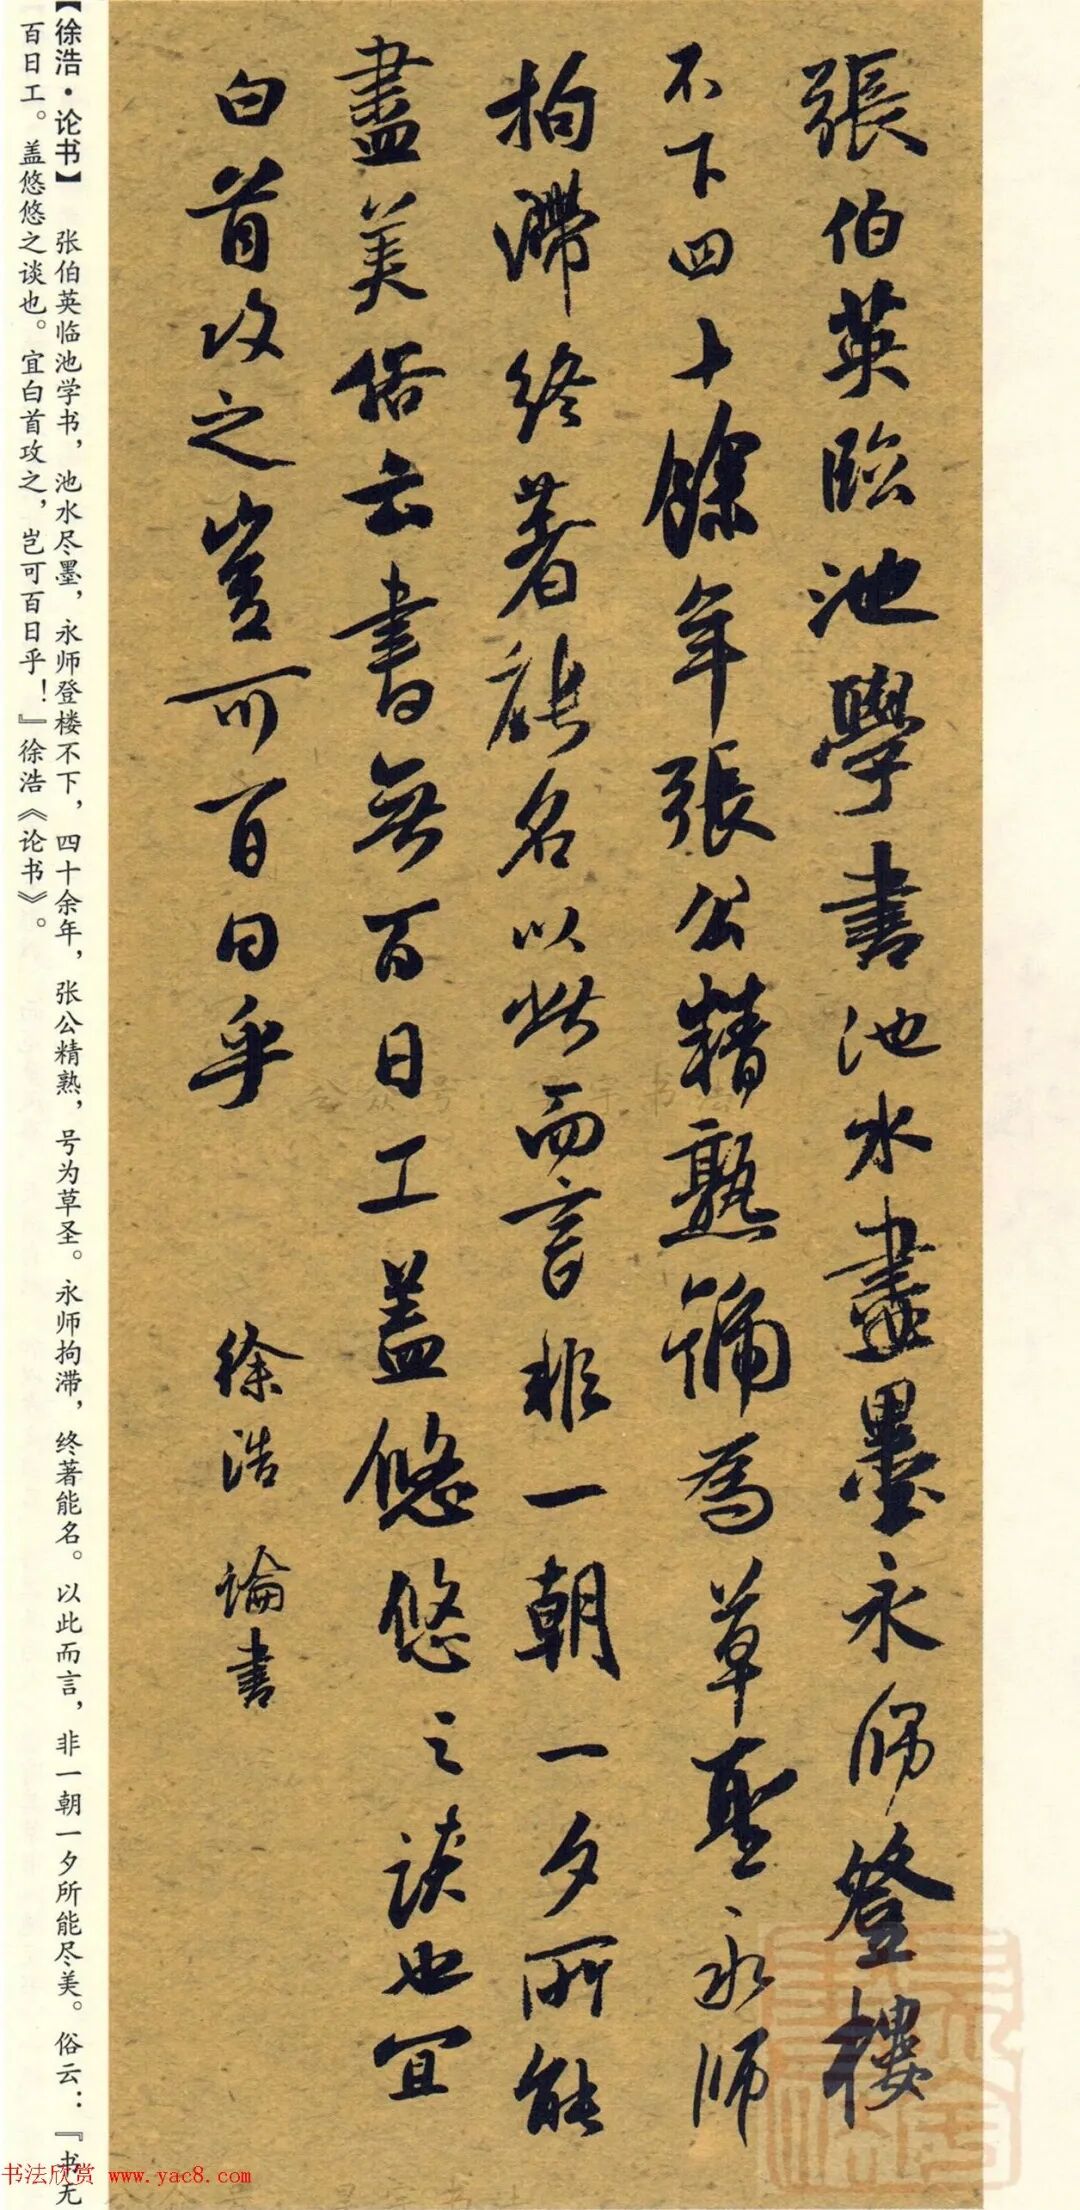 張伯英臨池學書池水盡墨永師登樓
不下四十餘年張公精熟號為草聖永師
拘滯終著能名以此而言非一朝一夕所能
盡美俗云書無百日工盖悠悠之談也宜
白首攻之豈可百日乎 徐浩 論書
【徐浩·论书】 张伯英临池学书，池水尽墨，永师登楼不下，四十余年，张公精熟，号为草圣。永师拘滞，终著能名。以此而言，非一朝一夕所能尽美。俗云：『书无
百日工。盖悠悠之谈也。宜白首攻之，岂可百日乎！』徐浩《论书》。
书法欣赏 www.yac8.com